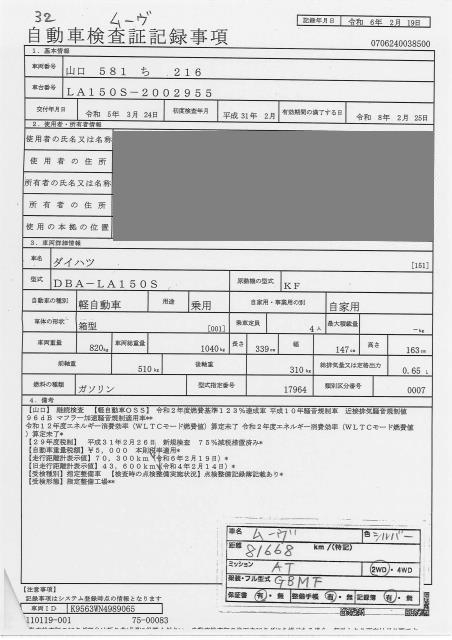 32 ムーヴ
自動車検査証記録事項
記録年月日 令和 6年 2月 19日
0706240038500
1．基本情報
車両番号 山口 581 ち 216
車台番号 LA150S-2002955
交付年月日 令和 5年 3月 24日 初度検査年月 平成 31年 2月 有効期間の満了する日 令和 8年 2月 25日
2．使用者・所有者情報
使用者の氏名又は名称
使用者の住所
所有者の氏名又は名称
所有者の住所
使用の本拠の位置
3．車両詳細情報
車名 ダイハツ [151]
型式 DBA-LA150S 原動機の型式 KF
自動車の種別 軽自動車 用途 乗用 自家用・事業用の別 自家用
車体の形状 箱型 [001] 乗車定員 4人 最大積載量 -kg
車両重量 820kg 車両総重量 1040kg 長さ 339cm 幅 147cm 高さ 163cm
前軸重 510kg 後軸重 310kg 総排気量又は定格出力 0.65 L
燃料の種類 ガソリン 型式指定番号 17964 類別区分番号 0007
4．備考
【山口】 継続検査 【軽自動車OSS】 令和2年度燃費基準123％達成車 平成10年騒音規制車 近接排気騒音規制値
96dB マフラー加速騒音規制適用車**
令和12年度エネルギー消費効率（WLTCモード燃費値）算定未了 令和2年度エネルギー消費効率（WLTCモード燃費値
）算定未了*
【29年度税制】 平成31年2月26日 新規検査 75％減税措置済み*
【自動車重量税額】¥5，000 本則税率適用*
【走行距離計表示値】70，300km（令和6年2月19日）*
【旧走行距離計表示値】43，600km（令和4年2月14日）*
【受検種別】指定整備車 【検査時の点検整備実施状況】点検整備記録簿記載あり*
【受検形態】指定整備工場**
車名 ムーヴ 色 シルバー
距離 81668 km／(特記)
ミッション AT 2WD・4WD
架装・フル型式 GBMF
保証書 有・無 整備手帳 有・無 記録簿 有・無
【注意事項】
記録事項はシステム登録時点の情報となります
車両ID K9563WN4989065
110119-001 75-00083